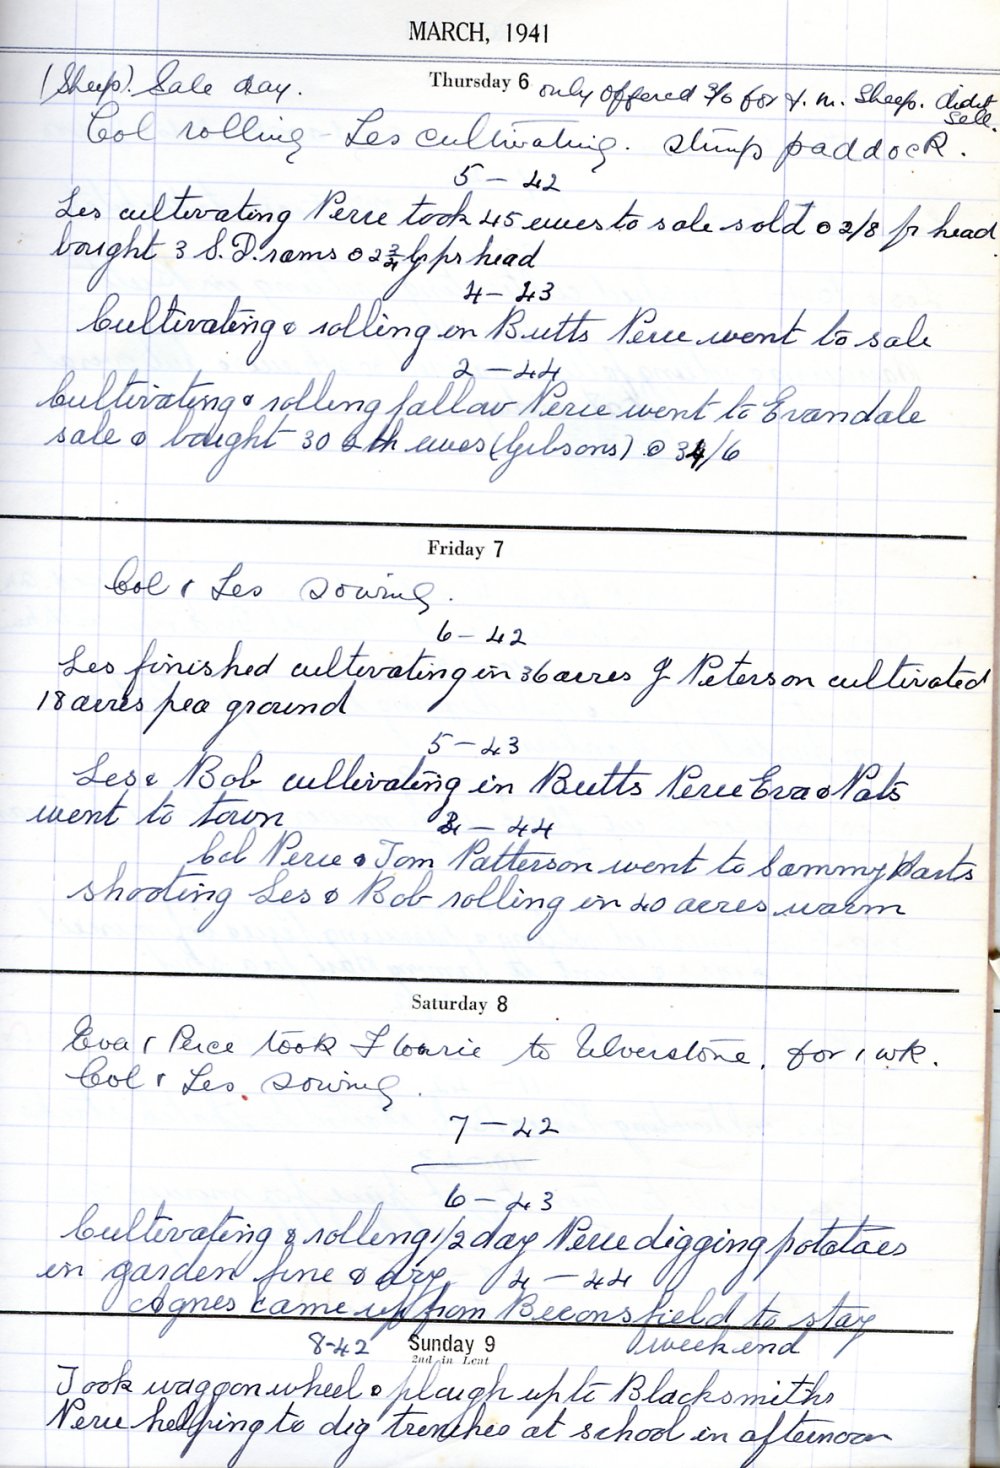 MARCH, 1941
(Sheep). Sale day. Thursday 6 only offered 3/6 for f. m. Sheep. didnt sell.
Col rolling - Les cultivating. stump paddock.
5 - 42
Les cultivating Perce took 45 ewes to sale sold @ 2/8 pr head
bought 3 S.D. rams @ 2¾ gns head
4 - 43
Cultivating & rolling in Butts Perce went to sale
2 - 44
Cultivating & rolling fallow Perce went to Evandale
sale & bought 30 ewes (Gibsons) @ 34/6
Friday 7
Col & Les sowing.
6 - 42
Les finished cultivating in 36 acres J Peterson cultivated
18 acres pea ground
5 - 43
Les & Bob cultivating in Butts Perce Eva & Pats
went to town
3 - 44
Col Perce & Tom Patterson went to Sammy Harts
shooting Les & Bob rolling in 40 acres warm
Saturday 8
Eva & Perce took Flourie to Ulverstone. for 1 wk.
Col & Les sowing.
7 - 42
6 - 43
Cultivating & rolling 1/2 day Perce digging potatoes
in garden fine & dry
4 - 44
Agnes came up from Beconsfield to stay
weekend
8-42 Sunday 9
2nd in Lent
Took waggon wheel & plough up to Blacksmiths
Perce helping to dig trenches at school in afternoon